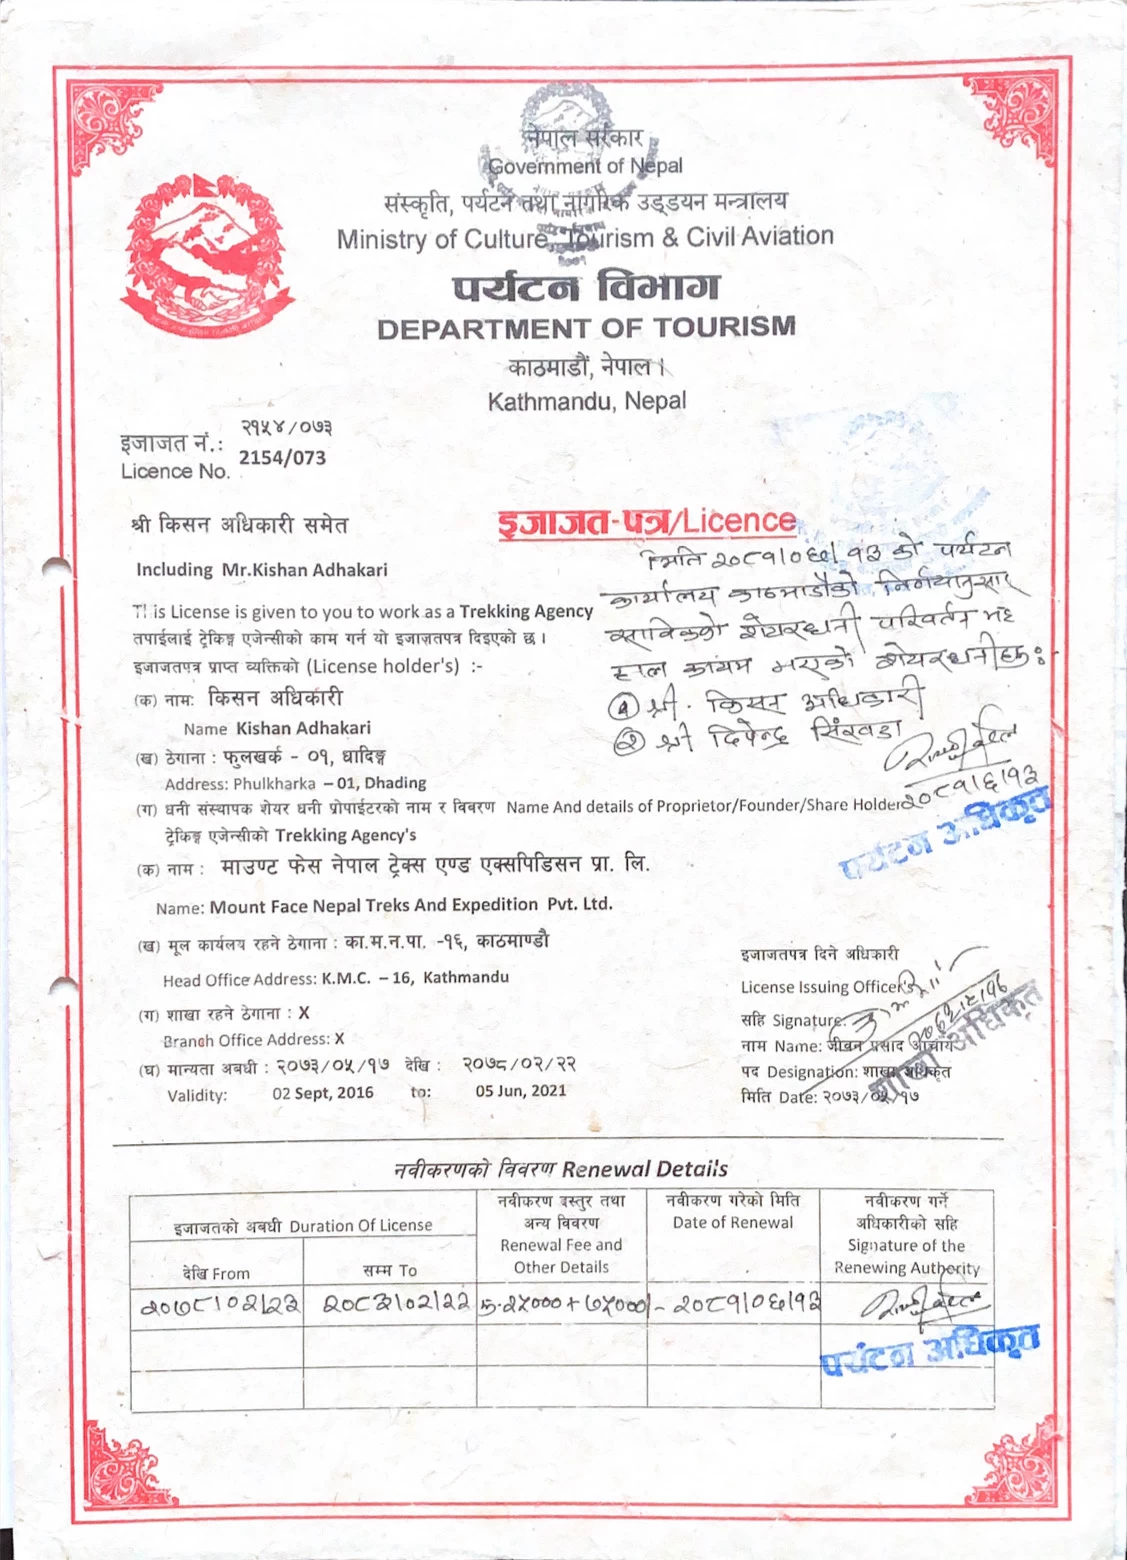 नेपाल सरकार
Government of Nepal
संस्कृति, पर्यटन तथा नागरिक उड्डयन मन्त्रालय
Ministry of Culture, Tourism & Civil Aviation
पर्यटन विभाग
DEPARTMENT OF TOURISM
काठमाडौं, नेपाल ।
Kathmandu, Nepal
२१५४/०७३
इजाजत नं.:
Licence No. 2154/073
श्री किसन अधिकारी समेत
इजाजत-पत्र/Licence
Including Mr.Kishan Adhakari
मिति २०८१।०६।१३ को पर्यटन
कार्यालय काठमाडौंको निर्णयानुसार
साविकको शेयरधनी परिवर्तन भइ
हाल कायम भएको शेयरधनीहरु :
१ श्री. किसन अधिकारी
२ श्री दिपेन्द्र सिंखडा
२०८१।६।१३
पर्यटन अधिकृत
This License is given to you to work as a Trekking Agency
तपाईलाई ट्रेकिङ्ग एजेन्सीको काम गर्न यो इजाजतपत्र दिइएको छ ।
इजाजतपत्र प्राप्त व्यक्तिको (License holder's) :-
(क) नाम: किसन अधिकारी
Name Kishan Adhakari
(ख) ठेगाना : फुलखर्क - ०१, धादिङ्ग
Address: Phulkharka – 01, Dhading
(ग) धनी संस्थापक शेयर धनी प्रोपाईटरको नाम र बिबरण Name And details of Proprietor/Founder/Share Holder
ट्रेकिङ्ग एजेन्सीको Trekking Agency's
(क) नाम : माउण्ट फेस नेपाल ट्रेक्स एण्ड एक्सपिडिसन प्रा. लि.
Name: Mount Face Nepal Treks And Expedition Pvt. Ltd.
(ख) मूल कार्यलय रहने ठेगाना : का.म.न.पा. -१६, काठमाण्डौ
Head Office Address: K.M.C. – 16, Kathmandu
(ग) शाखा रहने ठेगाना : X
Branch Office Address: X
(घ) मान्यता अबधी : २०७३/०५/१७ देखि : २०७८/०२/२२
Validity: 02 Sept, 2016 to: 05 Jun, 2021
इजाजतपत्र दिने अधिकारी
License Issuing Officer's
सहि Signature:
नाम Name: जीबन प्रसाद आचार्य
पद Designation: शाखा अधिकृत
मिति Date: २०७३/०५/१७
शाखा अधिकृत
नवीकरणको विवरण Renewal Details
इजाजतको अबधी Duration Of License
देखि From
सम्म To
नवीकरण दस्तुर तथा
अन्य विबरण
Renewal Fee and
Other Details
नवीकरण गरेको मिति
Date of Renewal
नवीकरण गर्ने
अधिकारीको सहि
Signature of the
Renewing Authority
२०७८।०२।२३ २०८३।०२।२२ रु.२५०००+७५०००।- २०८१।०६।१३
पर्यटन अधिकृत